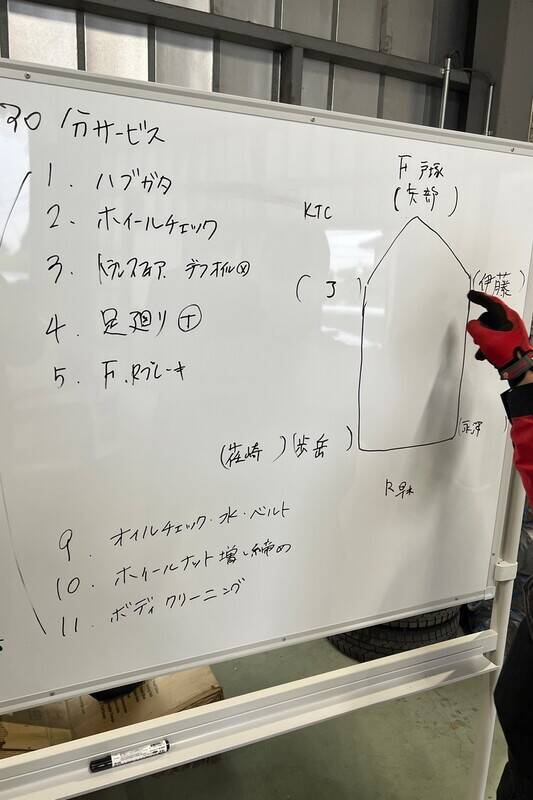 30分サービス
1. ハブガタ
2. ホイールチェック
3. トランスファ デフオイル
4. 足廻り Ⓣ
5. F.Rブレーキ
9. オイルチェック・水・ベルト
10. ホイールナット増し締め
11. ボディクリーニング
F 戸塚
(矢部)
KTC
(伊藤)
崎)
R